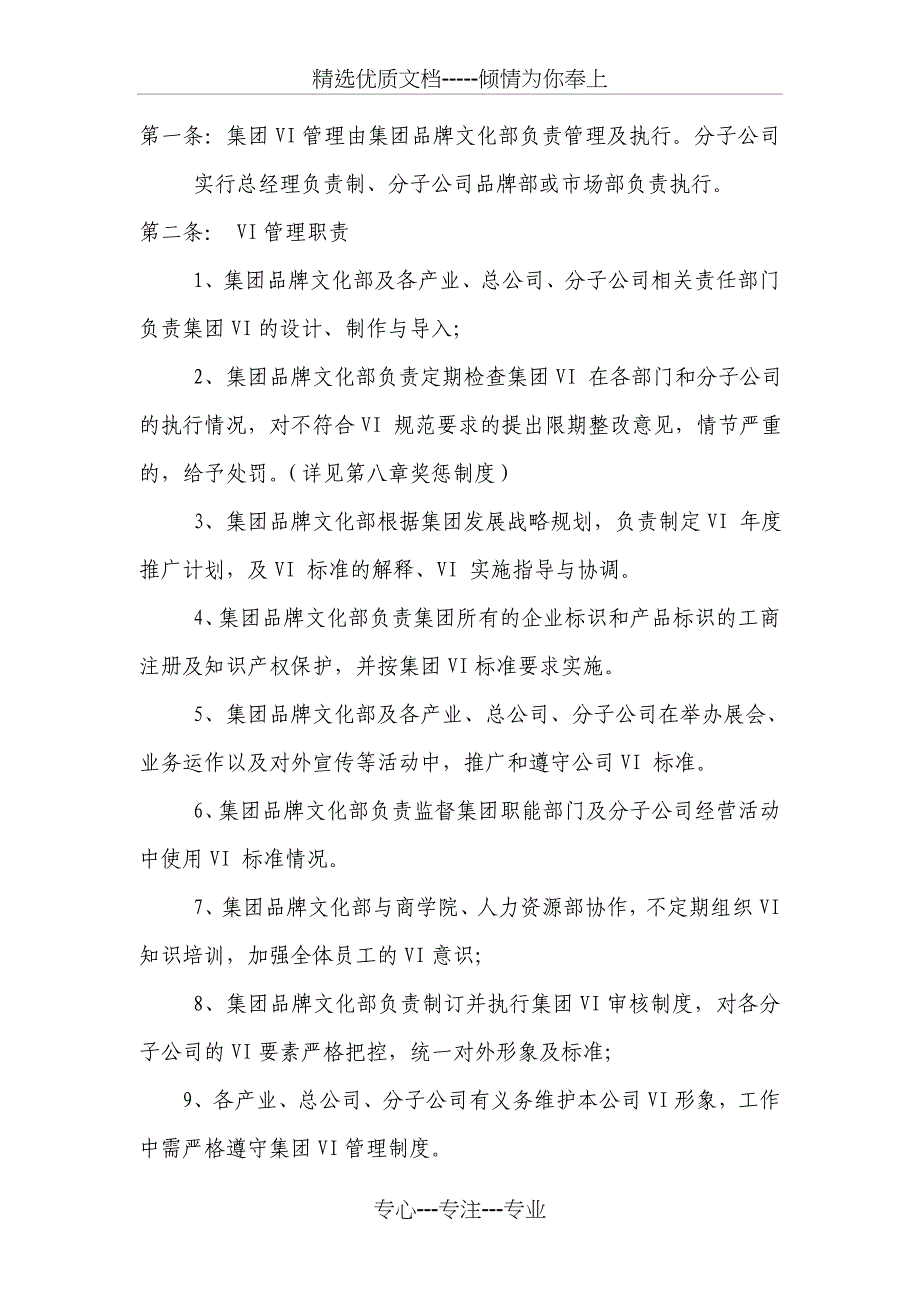 精选优质文档-----倾情为你奉上
第一条：集团 VI 管理由集团品牌文化部负责管理及执行。分子公司
实行总经理负责制、分子公司品牌部或市场部负责执行。
第二条： VI 管理职责
1、集团品牌文化部及各产业、总公司、分子公司相关责任部门
负责集团 VI 的设计、制作与导入；
2、集团品牌文化部负责定期检查集团 VI 在各部门和分子公司
的执行情况，对不符合 VI 规范要求的提出限期整改意见，情节严重
的，给予处罚。（详见第八章奖惩制度）
3、集团品牌文化部根据集团发展战略规划，负责制定 VI 年度
推广计划，及 VI 标准的解释、VI 实施指导与协调。
4、集团品牌文化部负责集团所有的企业标识和产品标识的工商
注册及知识产权保护，并按集团 VI 标准要求实施。
5、集团品牌文化部及各产业、总公司、分子公司在举办展会、
业务运作以及对外宣传等活动中，推广和遵守公司 VI 标准。
6、集团品牌文化部负责监督集团职能部门及分子公司经营活动
中使用 VI 标准情况。
7、集团品牌文化部与商学院、人力资源部协作，不定期组织 VI
知识培训，加强全体员工的 VI 意识；
8、集团品牌文化部负责制订并执行集团 VI 审核制度，对各分
子公司的 VI 要素严格把控，统一对外形象及标准；
9、各产业、总公司、分子公司有义务维护本公司 VI 形象，工作
中需严格遵守集团 VI 管理制度。
专心---专注---专业